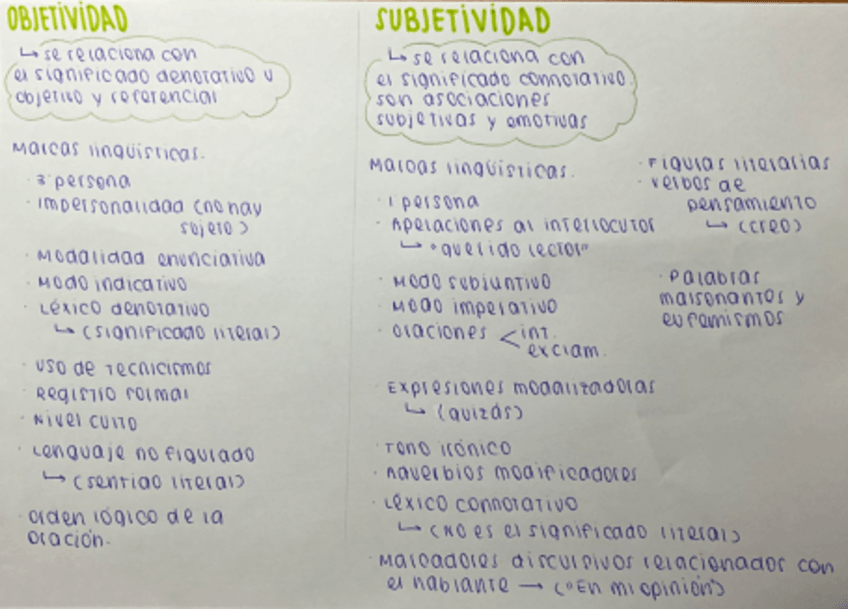 OBJETIVIDAD
↳ se relaciona con
el significado denotativo u
objetivo y referencial
Marcas lingüísticas.
· 3ª persona
· Impersonalidad (no hay
sujeto)
· Modalidad enunciativa
· Modo indicativo
· Léxico denotativo
↳ (significado literal)
· Uso de tecnicismos
· Registro formal
· Nivel culto
· Lenguaje no figurado
↳ (sentido literal)
· Orden lógico de la
oración.
SUBJETIVIDAD
↳ se relaciona con
el significado connotativo.
son asociaciones
subjetivas y emotivas
Marcas lingüísticas.
· 1 persona
· Apelaciones al interlocutor
↳ "querido lector"
· Modo subjuntivo
· Modo imperativo
· Oraciones < int.
exclam.
· Expresiones modalizadoras
↳ (quizás)
· Tono irónico
· Adverbios modificadores
· Léxico connotativo
↳ (No es el significado literal)
· Marcadores discursivos relacionados con
el hablante → ("En mi opinión")
· Figuras literarias
· Verbos de
pensamiento
↳ (creo)
· Palabras
malsonantes y
eufemismos